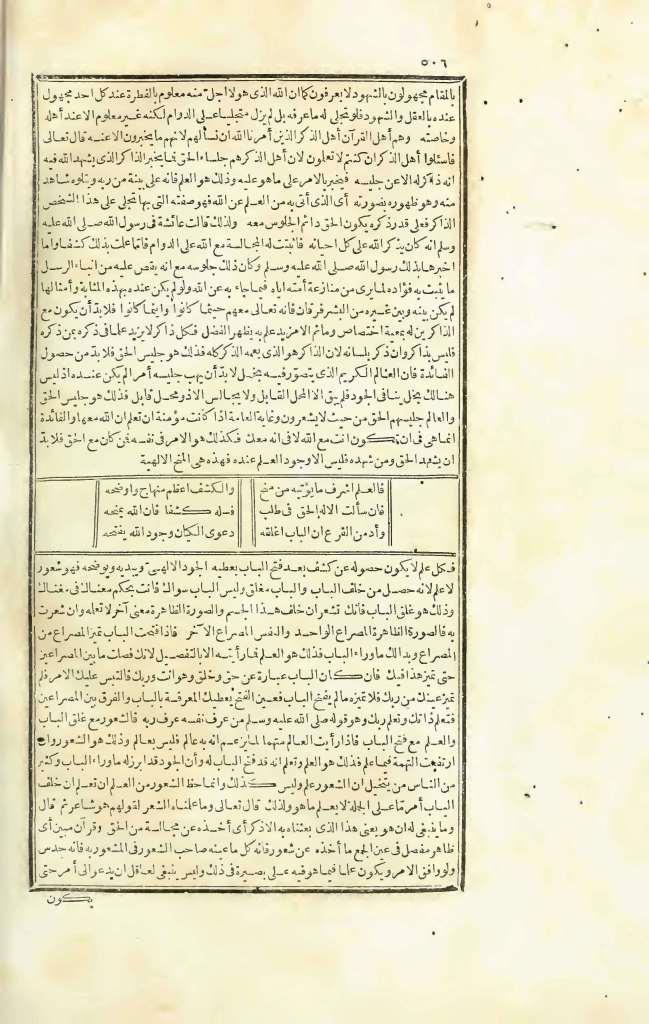 ٥٠٦
بالمقام مجهولون بالشهود لا يعرفون كما ان الله الذى هو لا اجل منه معلوم بالفطرة عند كل احد مجهول
عنده بالعقل والشهود فلو تجلى له ما عرفه بل لم يزل متجليا على الدوام لكنه غير معلوم الا عند أهله
وخاصته وهم أهل القرآن أهل الذكر الذين أمرنا الله ان نسألهم لانهم ما يخبرون الا عنه قال تعالى
فاسئلوا أهل الذكر ان كنتم لا تعلمون لان أهل الذكر هم جلساء الحق فما يخبر الذاكر الذى يشهد الله فيه
انه ذاكر له الا عن جليسه فيخبر بالامر على ما هو عليه وذلك هو العلم فانه على بينة من ربه ويتلوه شاهد
منه وهو ظهوره بصورته أى الذى أتى به من العلم عن الله فهو صفته التى بها تجلى على هذا الشخص
الذاكر فعلى قدر ذكره يكون الحق دائم الجلوس معه ولذلك قالت عائشة فى رسول الله صلى الله عليه
وسلم انه كان يذكر الله على كل احيانه فاثبتت له المجالسة مع الله على الدوام فاما علمت بذلك كشفا واما
اخبرها بذلك رسول الله صلى الله عليه وسلم وكان ذلك جلوسه مع انه يقص عليه من انباء الرسل
ما يثبت به فؤاده لما يرى من منازعة أمته اياه فيما جاء به عن الله ولو لم يكن عنده بهذه المثابة وأمثالها
لم يكن بينه وبين غيره من البشر فرقان فانه تعالى معهم حيثما كانوا وأينما كانوا فلا بد أن يكون مع
الذاكرين له بمعية اختصاص وما ثم الا مزيد علم به يظهر الفضل فكل ذاكر لا يزيد علما فى ذكره بمن ذكره
فليس بذاكر وان ذكر بلسانه لان الذاكر هو الذى يعمه الذكر كله فذلك هو جليس الحق فلا بد من حصول
الفائدة فان العالم الكريم الذى يتصور فيه بخل لا بد أن يهب جليسه أمرا لم يكن عنده اذ ليس
هنالك بخل ينافى الجود فلم يبق الا المحل القابل ولا يجالس الا ذو محل قابل فذلك هو جليس الحق
والعالم جليسهم الحق من حيث لا يشعرون وغاية العامة اذا كانت مؤمنة ان تعلم ان الله معها والفائدة
انما هى فى ان تكون انت مع الله لا فى انه معك فكذلك هو الامر فى نفسه فمن كان مع الحق فلا بد
ان يشهد الحق ومن شهده فليس الا وجود العلم عنده فهذه هى المنح الالهية
فالعلم اشرف ما يؤتيه من منح والكشف اعظم منهاج واوضحه
فان سألت الاله الحق فى طلب فسله كشفا فان الله يمنحه
وأدمن القرع ان الباب اغلقه دعوى الكيان وجود الله يفتحه
فكل علم لا يكون حصوله عن كشف بعد فتح الباب يعطيه الجود الالهى ويبديه ويوضحه فهو شعور
لا علم لانه حصل من خلف الباب والباب مغلق وليس الباب سواك فانت بحكم معناك فى مغناك
وذلك هو غلق الباب فانك تشعر ان خلف هذا الجسم والصورة الظاهرة معنى آخر لا تعلمه وان شعرت
به فالصورة الظاهرة المصراع الواحد والنفس المصراع الآخر فاذا فتحت الباب تميز المصراع من
المصراع وبدا لك ما وراء الباب فذلك هو العلم فما رأيته الا بالتفصيل لانك فصلت ما بين المصراعين
حتى تميز هذا فيك فان كان الباب عبارة عن حق وخلق وهو انت وربك فالتبس عليك الامر فلم
تميز عينك من ربك فلا تميزه ما لم يفتح الباب فعين الفتح يعطيك المعرفة بالباب والفرق بين المصراعين
فتعلم ذاتك وتعلم ربك وهو قوله صلى الله عليه وسلم من عرف نفسه عرف ربه فالشعور مع غلق الباب
والعلم مع فتح الباب فاذا رأيت العالم متهما لما يزعم انه به عالم فليس بعالم وذلك هو الشعور وان
ارتفعت التهمة فيما علم فذلك هو العلم وتعلم انه قد فتح الباب له وأن الجود قد ابرز له ما وراء الباب وكثير
من الناس من يتخيل ان الشعور علم وليس كذلك وانما حظ الشعور من العلم ان تعلم ان خلف
الباب أمرا ما على الجملة لا يعلم ما هو ولذلك قال تعالى وما علمناه الشعر لقولهم هو شاعر ثم قال
وما ينبغى له ان هو يعنى هذا الذى بعثناه به الا ذكر أى أخذه عن مجالسة من الحق وقرآن مبين أى
ظاهر مفصل فى عين الجمع ما أخذه عن شعور فانه كل ما عينه صاحب الشعور فى المشعور به فانه حدس
ولو وافق الامر ويكون علما فما هو فيه على بصيرة فى ذلك وليس ينبغى لعاقل ان يدعو الى أمر حتى
يكون